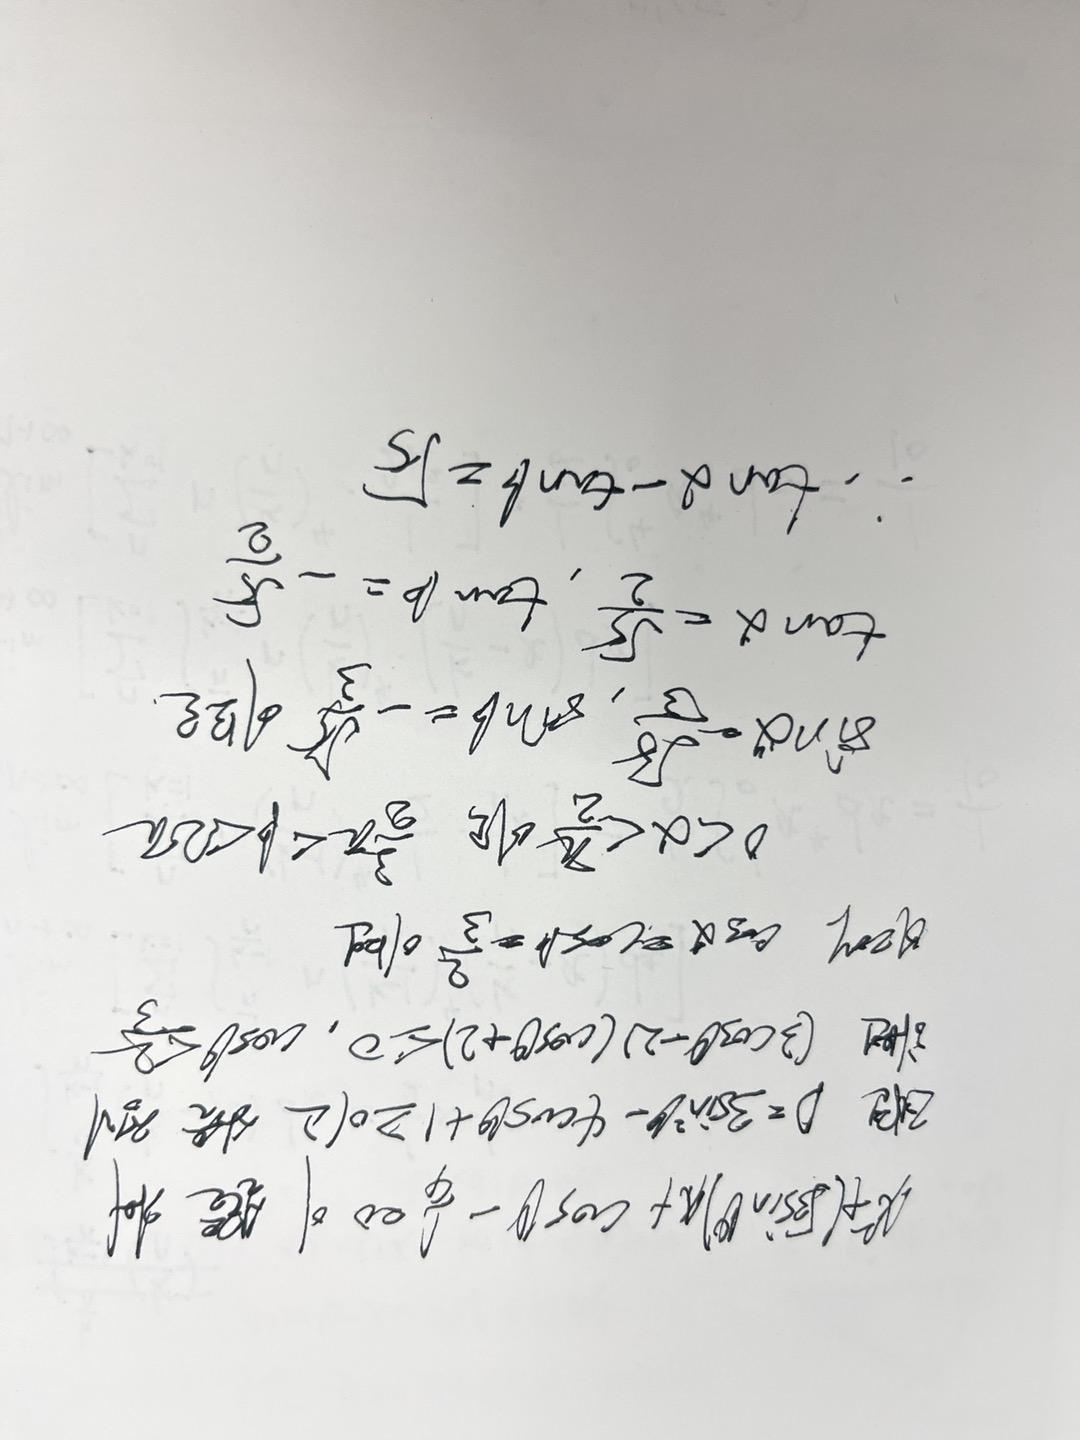 x²+(√3sinθ)x + cosθ - 1/4 = 0 이 실근을 가져
되면 D = 3sin²θ - 4cosθ + 1 ≥ 0 이고 식을 정리
하면 (3cosθ-2)(cosθ+2) ≤ 0, cosθ ≤ 2/3
따라서 cosα = cosβ = 2/3 이면
0 < α < π/2 이고 3/2π < β < 2π
sinα = √5/3, sinβ = -√5/3 이므로
tanα = √5/2, tanβ = -√5/2
∴ tanα - tanβ = √5